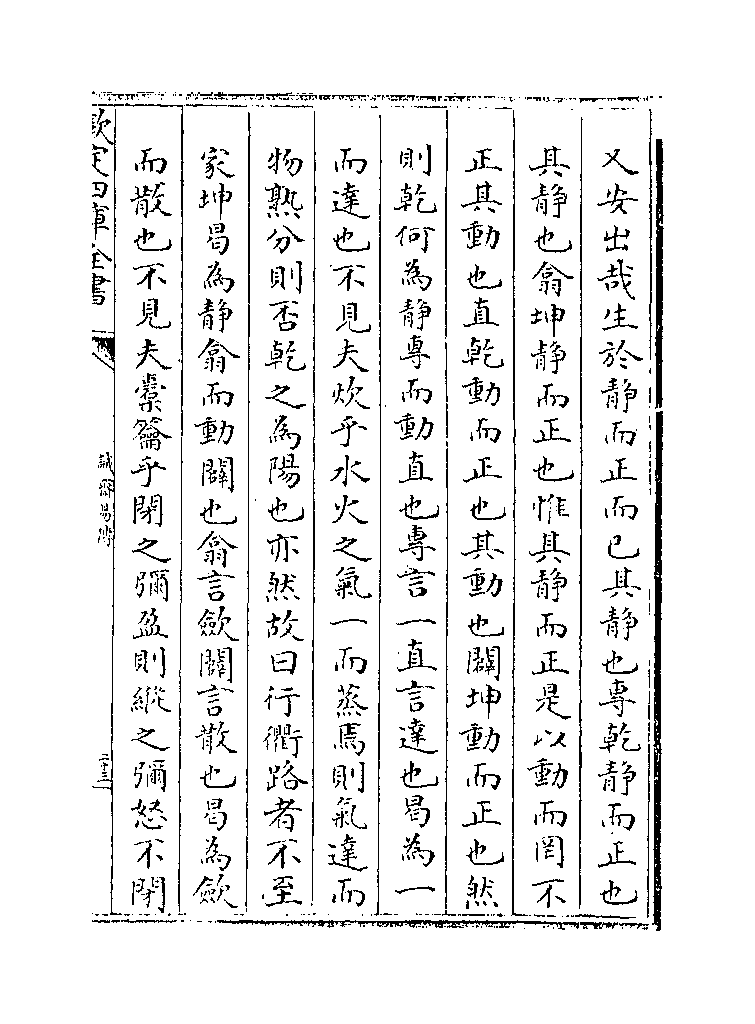 又安出哉生於静而正而已其静也專乾静而正也
其静也翕坤静而正也惟其静而正是以動而罔不
正其動也直乾動而正也其動也闢坤動而正也然
則乾何為静專而動直也專言一直言達也曷為一
而達也不見夫炊乎水火之氣一而蒸焉則氣達而
物熟分則否乾之為陽也亦然故曰行衢路者不至
家坤曷為静翕而動闢也翕言歛闢言散也曷為歛
而散也不見夫橐籥乎閉之彌盈則縱之彌怒不閉
欽定四庫全書
誠齋易傳
二十三